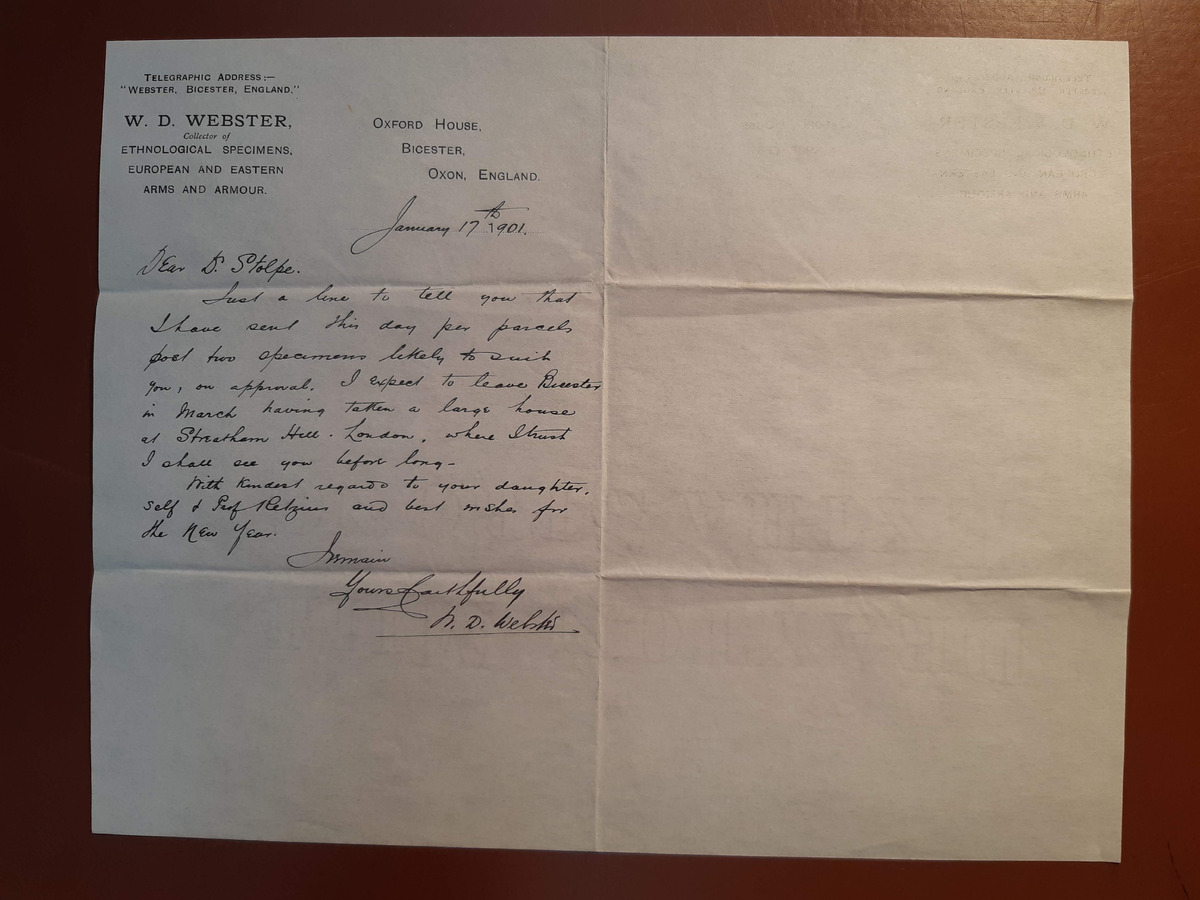 TELEGRAPHIC ADDRESS:—
"WEBSTER, BICESTER, ENGLAND."
W. D. WEBSTER,
Collector of
ETHNOLOGICAL SPECIMENS,
EUROPEAN AND EASTERN
ARMS AND ARMOUR.
OXFORD HOUSE,
BICESTER,
OXON, ENGLAND.
January 17th 1901.
Dear Dr. Stolpe.
Just a line to tell you that
I have sent this day per parcels
post two specimens likely to suit
you, on approval. I expect to leave Bicester
in March having taken a large house
at Streatham Hill - London, where I trust
I shall see you before long -
With kindest regards to your daughter,
self & Prof Retzius and best wishes for
the New Year.
I remain
Yours faithfully
W. D. Webster